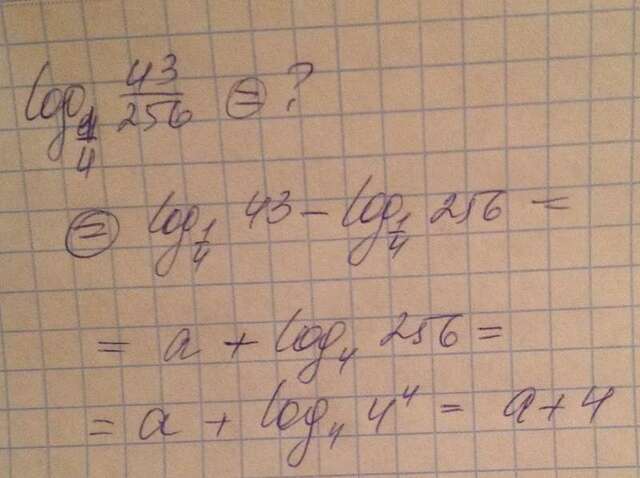 log_{1/4} 43/256 ⊜ ?
⊜ log_{1/4} 43 - log_{1/4} 256 =
= a + log_4 256 =
= a + log_4 4^4 = a + 4